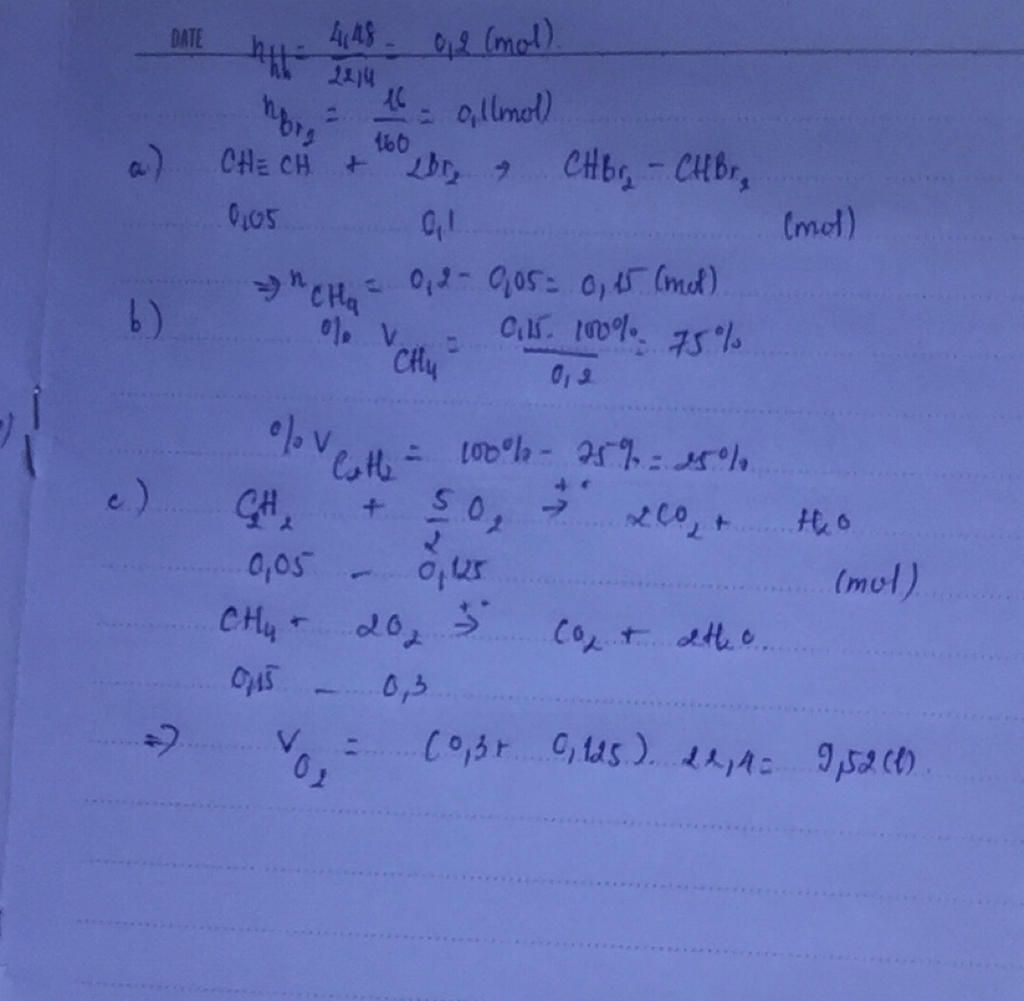 DATE n_hh = 4,48/22,4 = 0,2 (mol).
n_Br₂ = 16/160 = 0,1 (mol)
a) CH≡CH + 2Br₂ → CHBr₂ - CHBr₂
0,05 0,1 (mol)
⇒ n_CH₄ = 0,2 - 0,05 = 0,15 (mol)
b) % V_CH₄ = 0,15. 100%/0,2 = 75%
% V_C₂H₂ = 100% - 75% = 25%
c) C₂H₂ + 5/2 O₂ →(t°) 2CO₂ + H₂O
0,05 - 0,125 (mol)
CH₄ + 2O₂ →(t°) CO₂ + 2H₂O.
0,15 - 0,3
⇒ V_O₂ = (0,3 + 0,125). 22,4 = 9,52 (l).